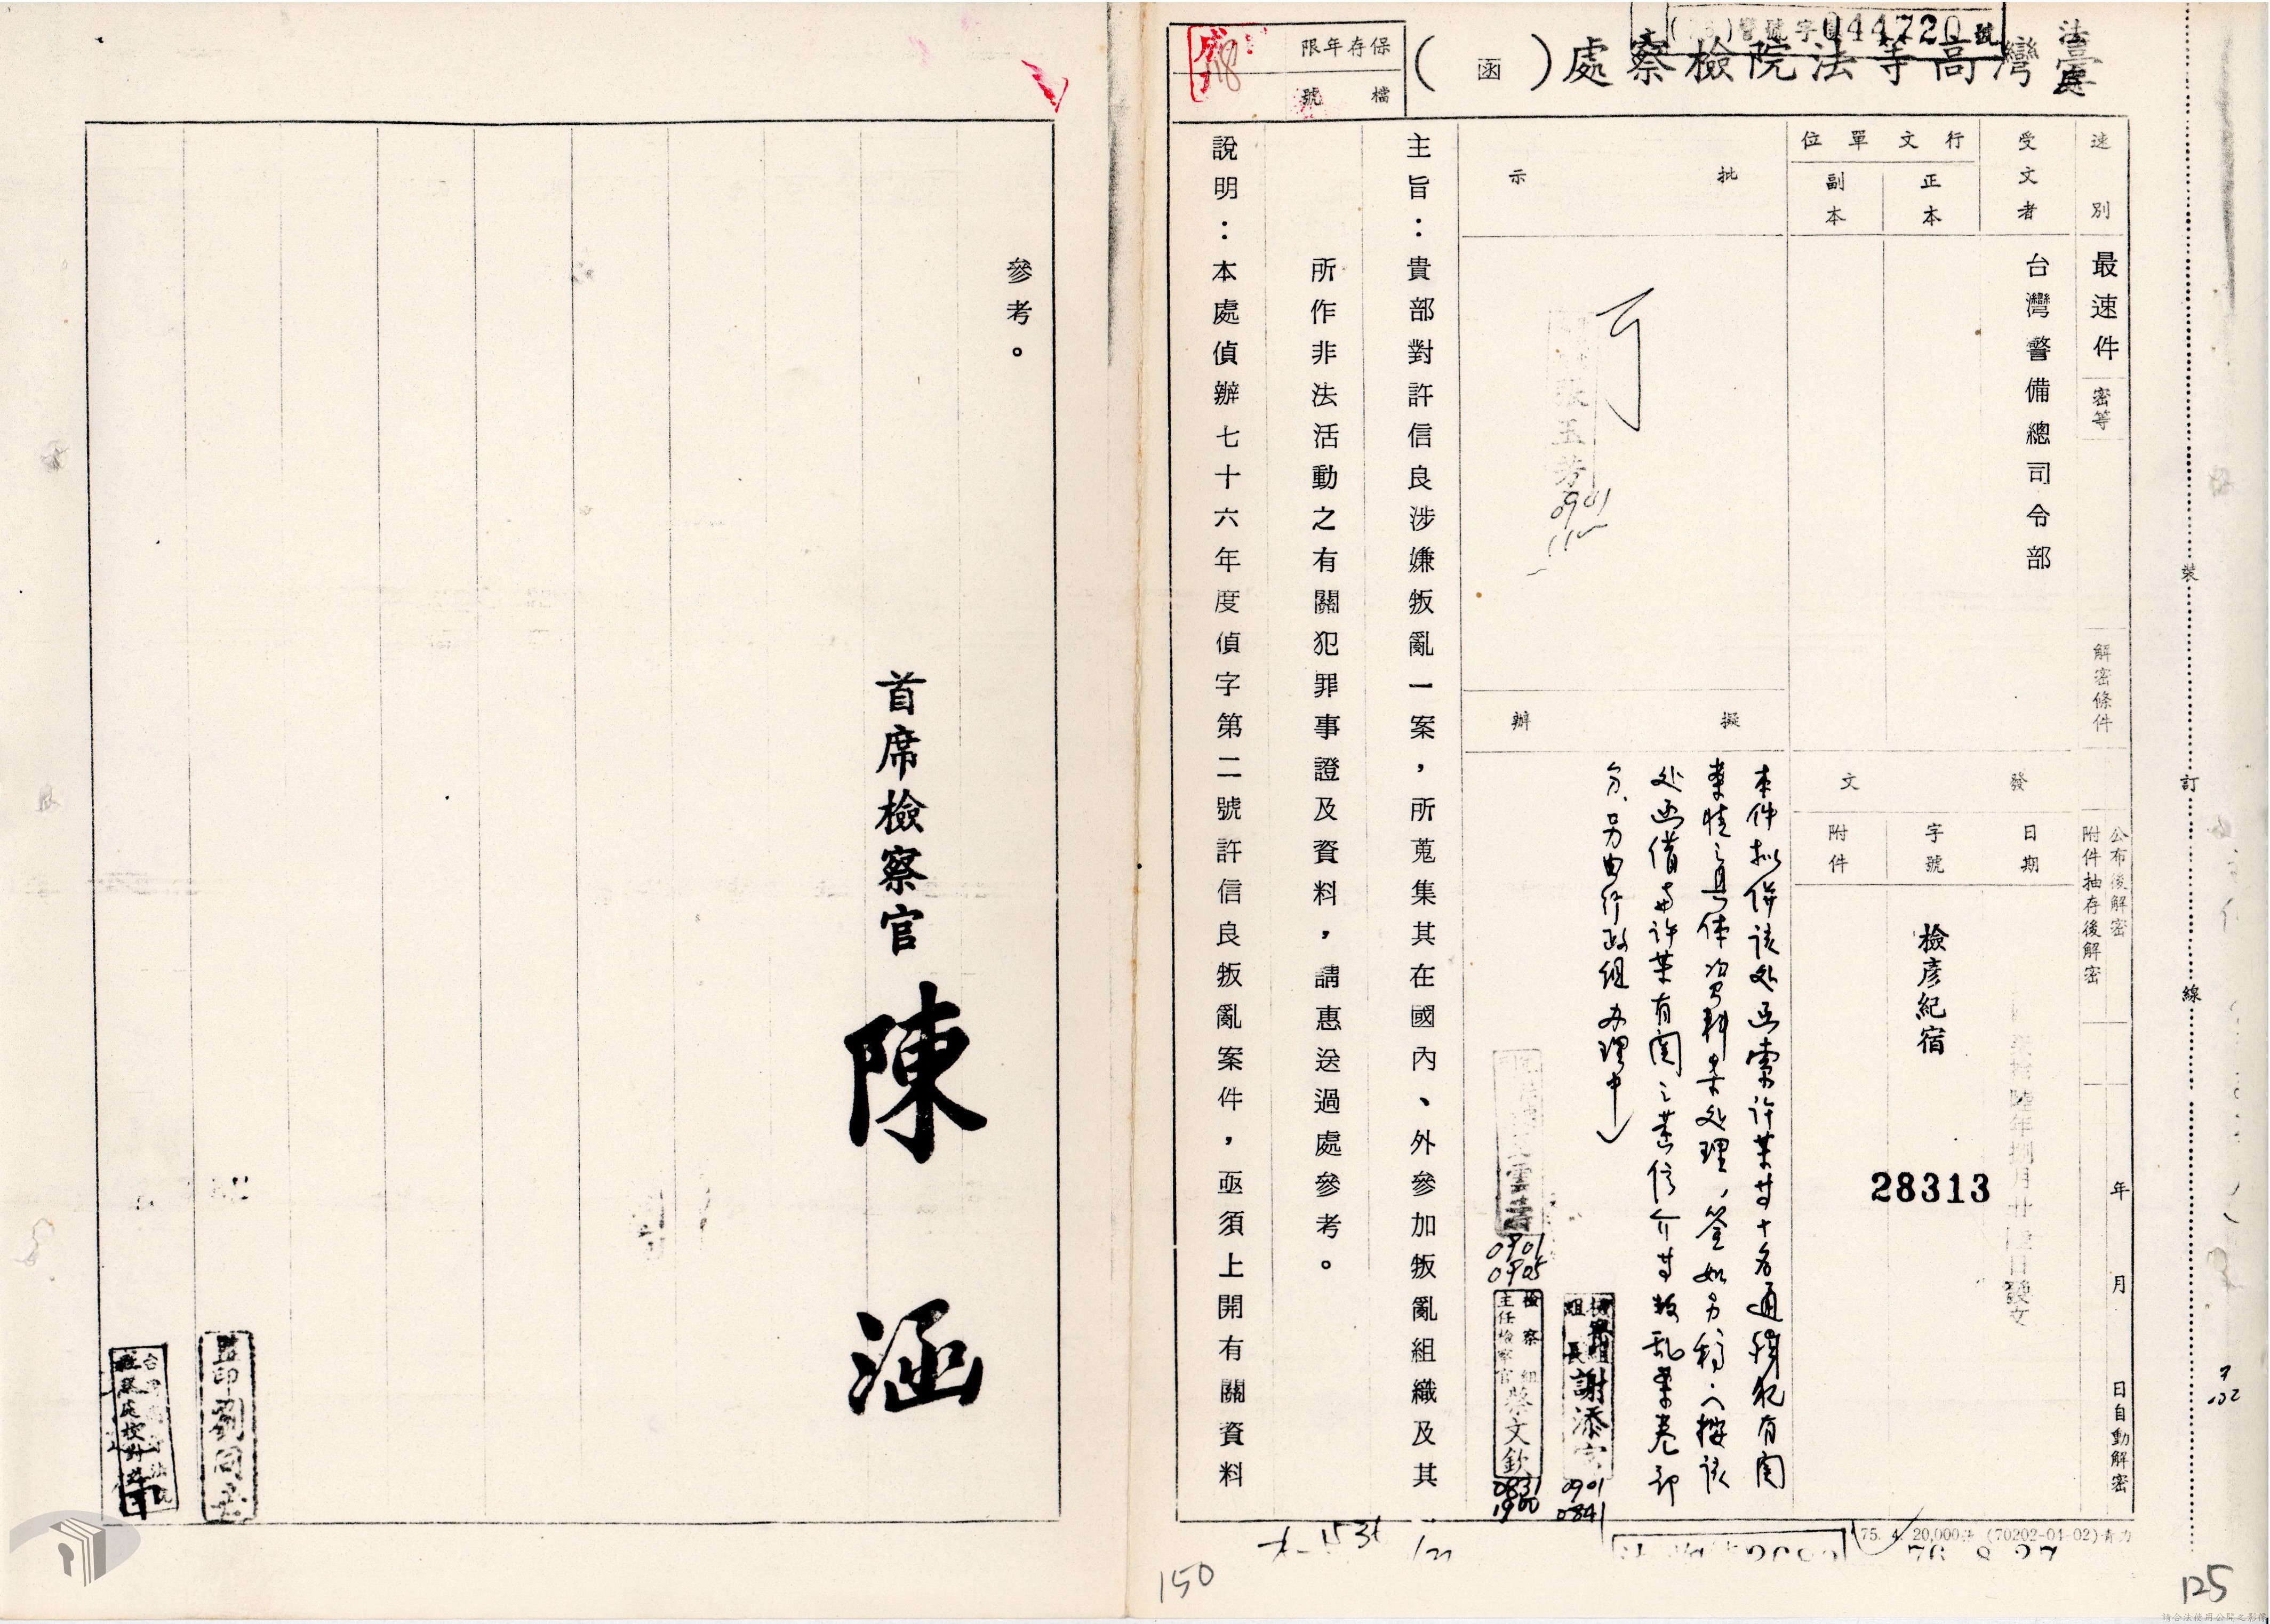 臺灣高等法院檢察處(函)
044720號
法
保存年限
檔號
速別
最速件
密等
解密條件
公布後解密
附件抽存後解密
年 月 日自動解密
受文者
台灣警備總司令部
行文單位
正本
副本
發文
日期
字號
檢彥紀宿
28313
附件
批示
可
0901
擬辦
本件拟併該处函索許某等十名通緝犯有関
業情之具体資料案处理,簽如另稿。(据該
处函借与許某有関之黃信介等叛乱案卷部
分,另由行政組办理中)
組長謝添
0901
0841
檢察組
主任檢察官蔡文欽
0831
1900
0901
0905
主旨:貴部對許信良涉嫌叛亂一案,所蒐集其在國內、外參加叛亂組織及其
所作非法活動之有關犯罪事證及資料,請惠送過處參考。
說明:本處偵辦七十六年度偵字第二號許信良叛亂案件,亟須上開有關資料
參考。
首席檢察官 陳涵
監印劉
裝
訂
線
75. 4. 20,000 (70202-04-02)
76. 8. 27
150
125